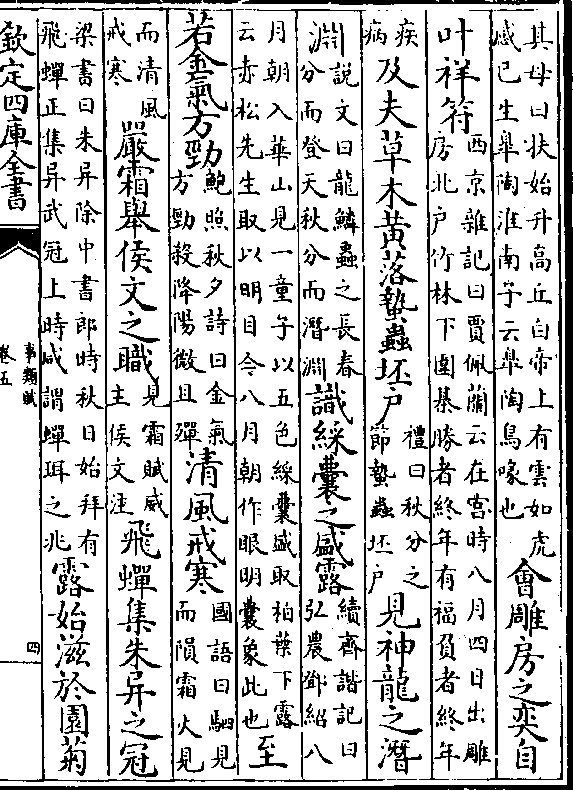 其母曰扶始升高丘白帝上有雲如虎
感已生臯陶淮南子云臯陶鳥喙也
會雕房之奕自
叶祥符
西京雜記曰賈佩蘭云在宫時八月四日出雕
房北户竹林下圍棊勝者終年有福負者終年
疾
病
及夫草木黄落蟄蟲坯户
禮曰秋分之
節蟄蟲坯户
見神龍之潛
淵
說文曰龍鱗蟲之長春
分而登天秋分而潛淵
識綵囊之盛露
續齊諧記曰
弘農鄧紹八
月朝入華山見一童子以五色綵囊盛取柏葉下露
云赤松先生取以明目今八月朝作眼明囊象此也
至
若金氣方勁
鮑照秋夕詩曰金氣
方勁殺降陽微且殫
清風戒寒
國語曰駟見
而隕霜火見
而清風
戒寒
嚴霜舉侯文之職
見霜賦威
主侯文注
飛蟬集朱异之冠
梁書曰朱异除中書郎時秋日始拜有
飛蟬正集异武冠上時咸謂蟬珥之兆
露始滋於園菊
欽定四庫全書
事類賦
卷五
四